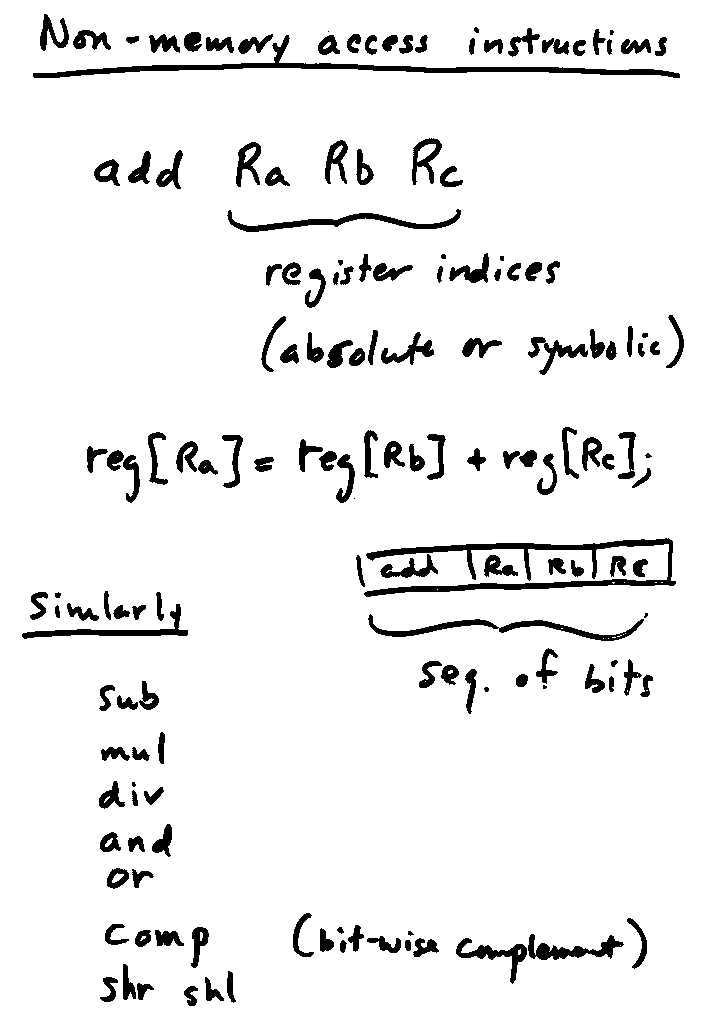 Non-memory access instructions
add Ra Rb Rc
register indices
(absolute or symbolic)
reg[Ra] = reg[Rb] + reg[Rc];
add Ra Rb Rc
Similarly
seq. of bits
sub
mul
div
and
or
comp (bit-wise complement)
shr shl